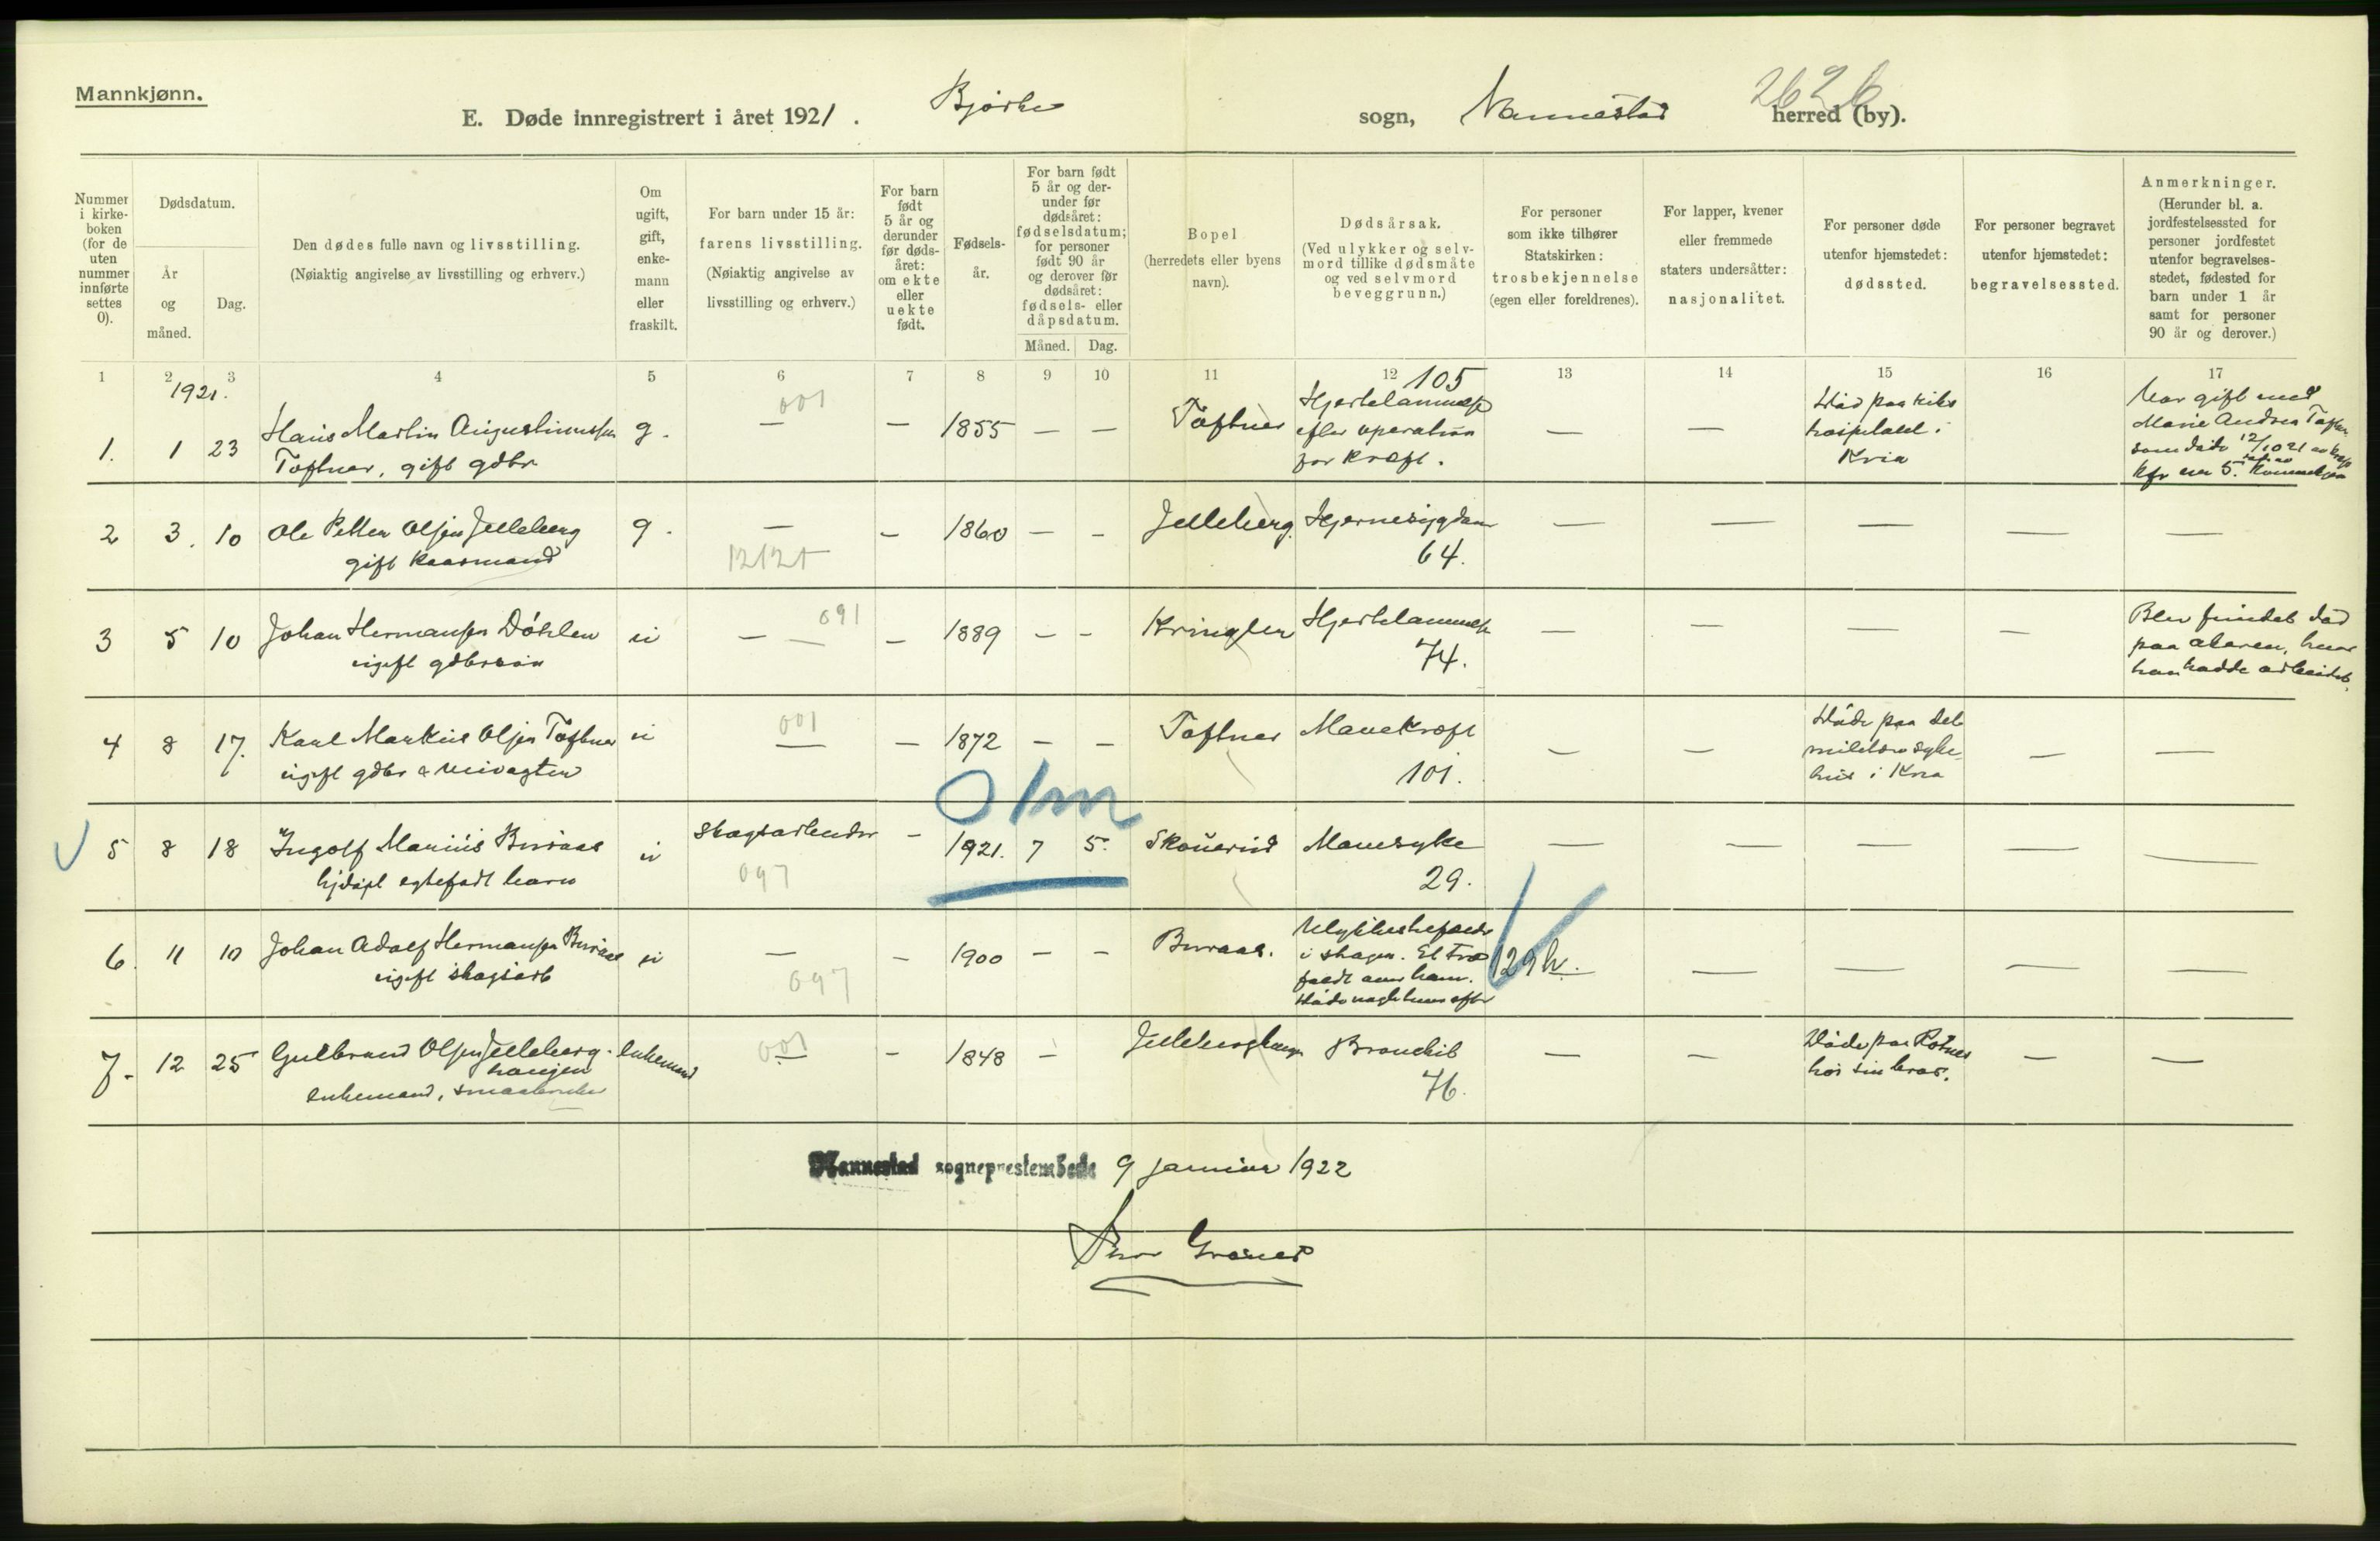 Mannkjønn.
E. Døde innregistrert i året 1921. Bjørke sogn, Nannestad herred (by).
2626
Nummer i kirkeboken (for de uten nummer innførte settes 0).
Dødsdatum.
År og måned.
Dag.
Den dødes fulle navn og livsstilling.
(Nøiaktig angivelse av livsstilling og erhverv.)
Om ugift, gift, enkemann eller fraskilt.
For barn under 15 år:
farens livsstilling.
(Nøiaktig angivelse av livsstilling og erhverv.)
For barn født 5 år og derunder før dødsåret: om ekte eller uekte født.
Fødselsår.
For barn født 5 år og derunder før dødsåret: fødselsdatum; for personer født 90 år og derover før dødsåret: fødsels- eller dåpsdatum.
Måned. Dag.
Bopel
(herredets eller byens navn).
Dødsårsak.
(Ved ulykker og selvmord tillike dødsmåte og ved selvmord beveggrunn.)
For personer som ikke tilhører Statskirken: trosbekjennelse (egen eller foreldrenes).
For lapper, kvener eller fremmede staters undersåtter: nasjonalitet.
For personer døde utenfor hjemstedet: dødssted.
For personer begravet utenfor hjemstedet: begravelsessted.
Anmerkninger.
(Herunder bl. a. jordfestelsessted for personer jordfestet utenfor begravelsesstedet, fødested for barn under 1 år samt for personer 90 år og derover.)
1 2 3 4 5 6 7 8 9 10 11 12 13 14 15 16 17
1921.
1. 1 23 Hans Martin Augustinussen g. — 001 — 1855 — — Toftner Hjertelammelse 105 — — Død paa Riks Var gift med
Toftner, gift gdbr efter operation hospitalet i Marie Andrea Toftner
for kræft. Kria som døde 12/10 21 av kræft
2 3. 10 Ole Petter Olsen Jelleberg g. — — 1860 — — Jelleberg. Hjernesygdom — — — — —
gift 12121 64.
3 5 10 Johan Hermansen Døhlen u — 091 — 1889 — — Kringler Hjertelammelse — — — — Blev fundet død
ugift gdbrsøn 74. paa akeren, hvor
han hadde arbeidet.
4 8 17. Karl Markus Olsen Toftner u 001 — 1872 — — Toftner Mavekræft — — Døde paa det — —
ugift gdbr & veivogter 101. militære syke-
hus i Kria
01m
5 8 18 Ingolf Marius Buraas u skogsarbeider — 1921. 7 5. Skouerud Mavesyke — — — — —
hjdøpt egtefødt barn 097 29.
6. 11 10 Johan Adolf Hermansen Buraas u — — 1900 — — Buraas. Ulykkestilfælde 129 h. — — — —
ugift skogsarb 097 i skogen. Et træ
faldt over ham.
Døde nogle timer efter
7. 12 25 Gulbrand Olsen Jelleberg- enkemand 001 — 1848 — Jelleberghaugen Bronchit — — Døde paa Rotnes — —
haugen 76. hos sin bror.
enkemand, smaabruker
Nannestad sogneprestembede 9 januar 1922